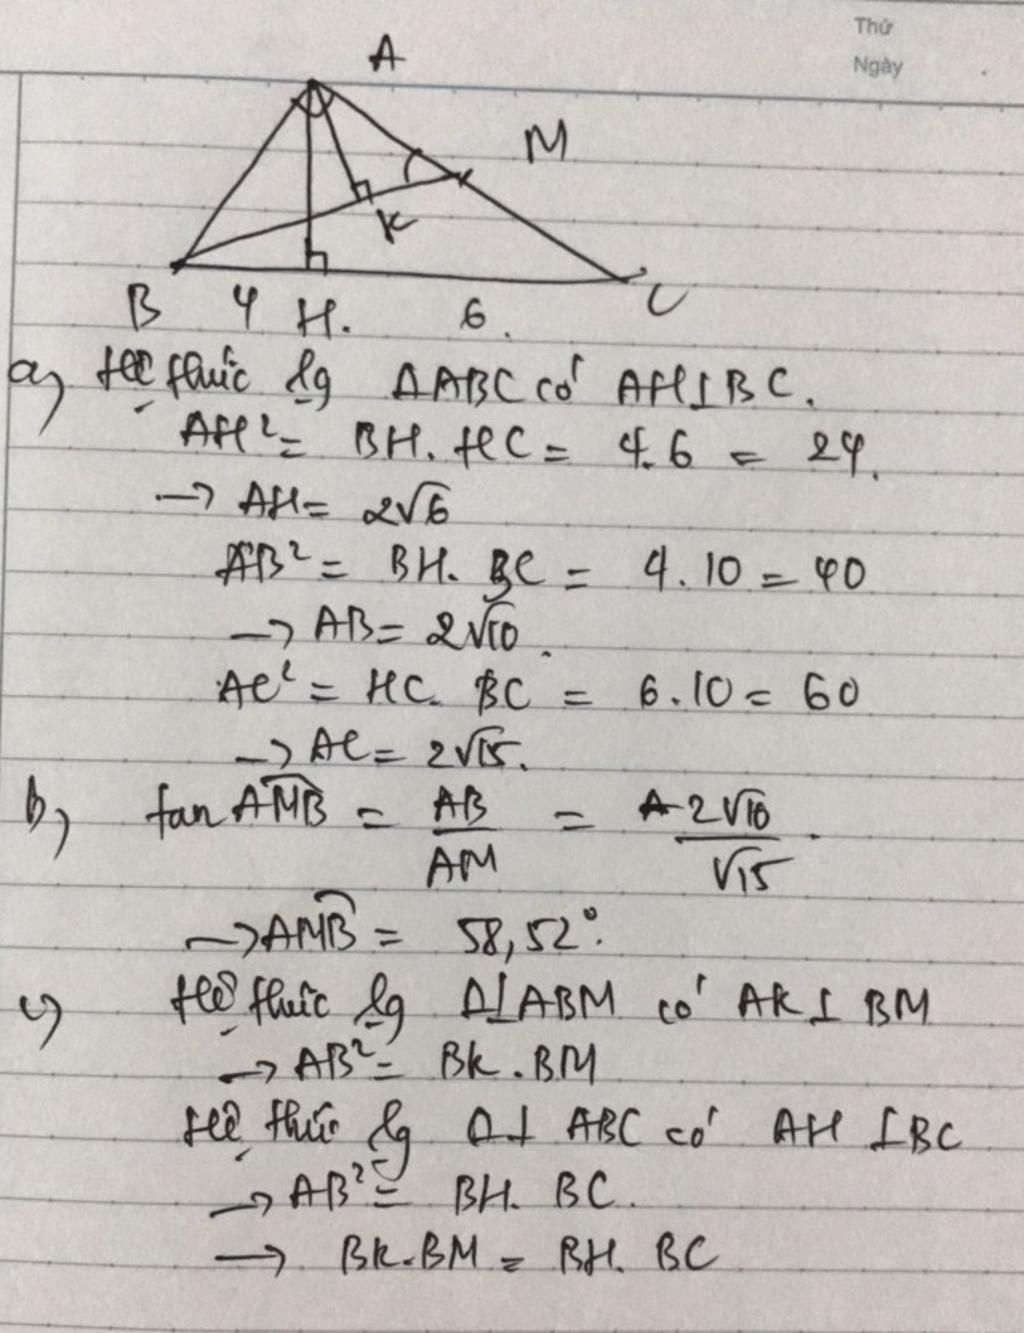 Thứ
Ngày
A
M
K
B 4 H. 6. C
a) Hệ thức lg ΔABC có AH⊥BC.
AH² = BH. HC = 4.6 = 24.
→ AH = 2√6
AB² = BH. BC = 4.10 = 40
→ AB = 2√10.
AC² = HC. BC = 6.10 = 60
→ AC = 2√15.
b) tan AMB = AB/AM = 2√10/√15.
→ AMB = 58,52°.
c) Hệ thức lg Δ⊥ABM có AK⊥BM
→ AB² = BK.BM
Hệ thức lg Δ⊥ ABC có AH ⊥BC
→ AB² = BH. BC.
→ BK.BM = BH. BC